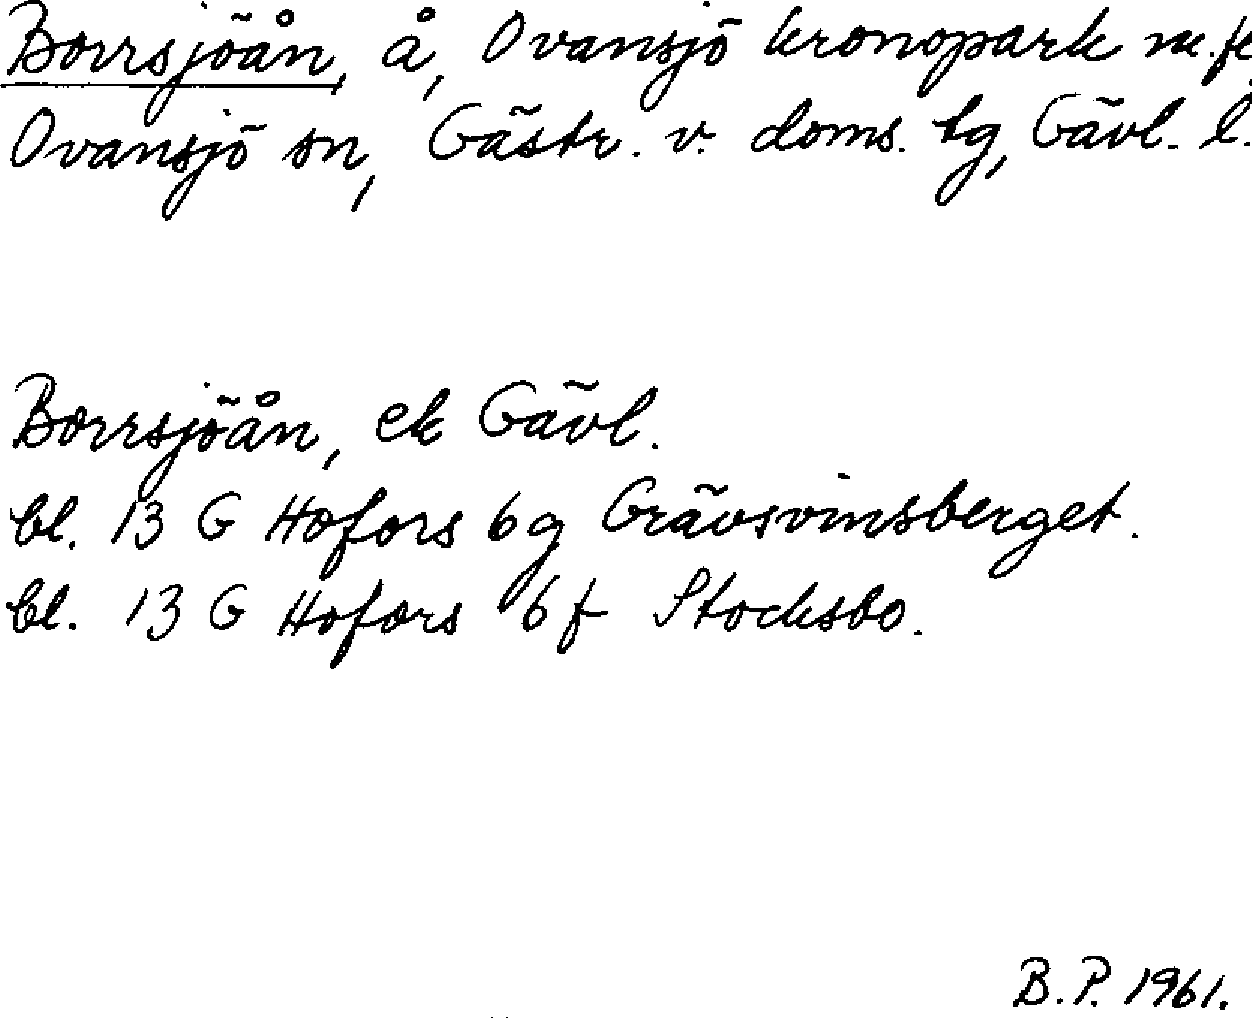 Borrsjöån, å, Ovansjö kronopark m.fl.
Ovansjö sn, Gästr. v. doms. tg, Gävl. l.
Borrsjöån, ek Gävl.
bl. 13 G Hofors 6g Grävsvinsberget.
bl. 13 G Hofors 6f Stocksbo.
B.P. 1961.